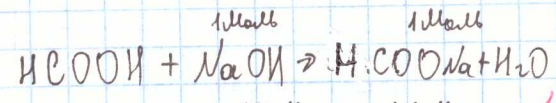 1 Моль 1 Моль
HCOOH + NaOH → H.COONa + H2O